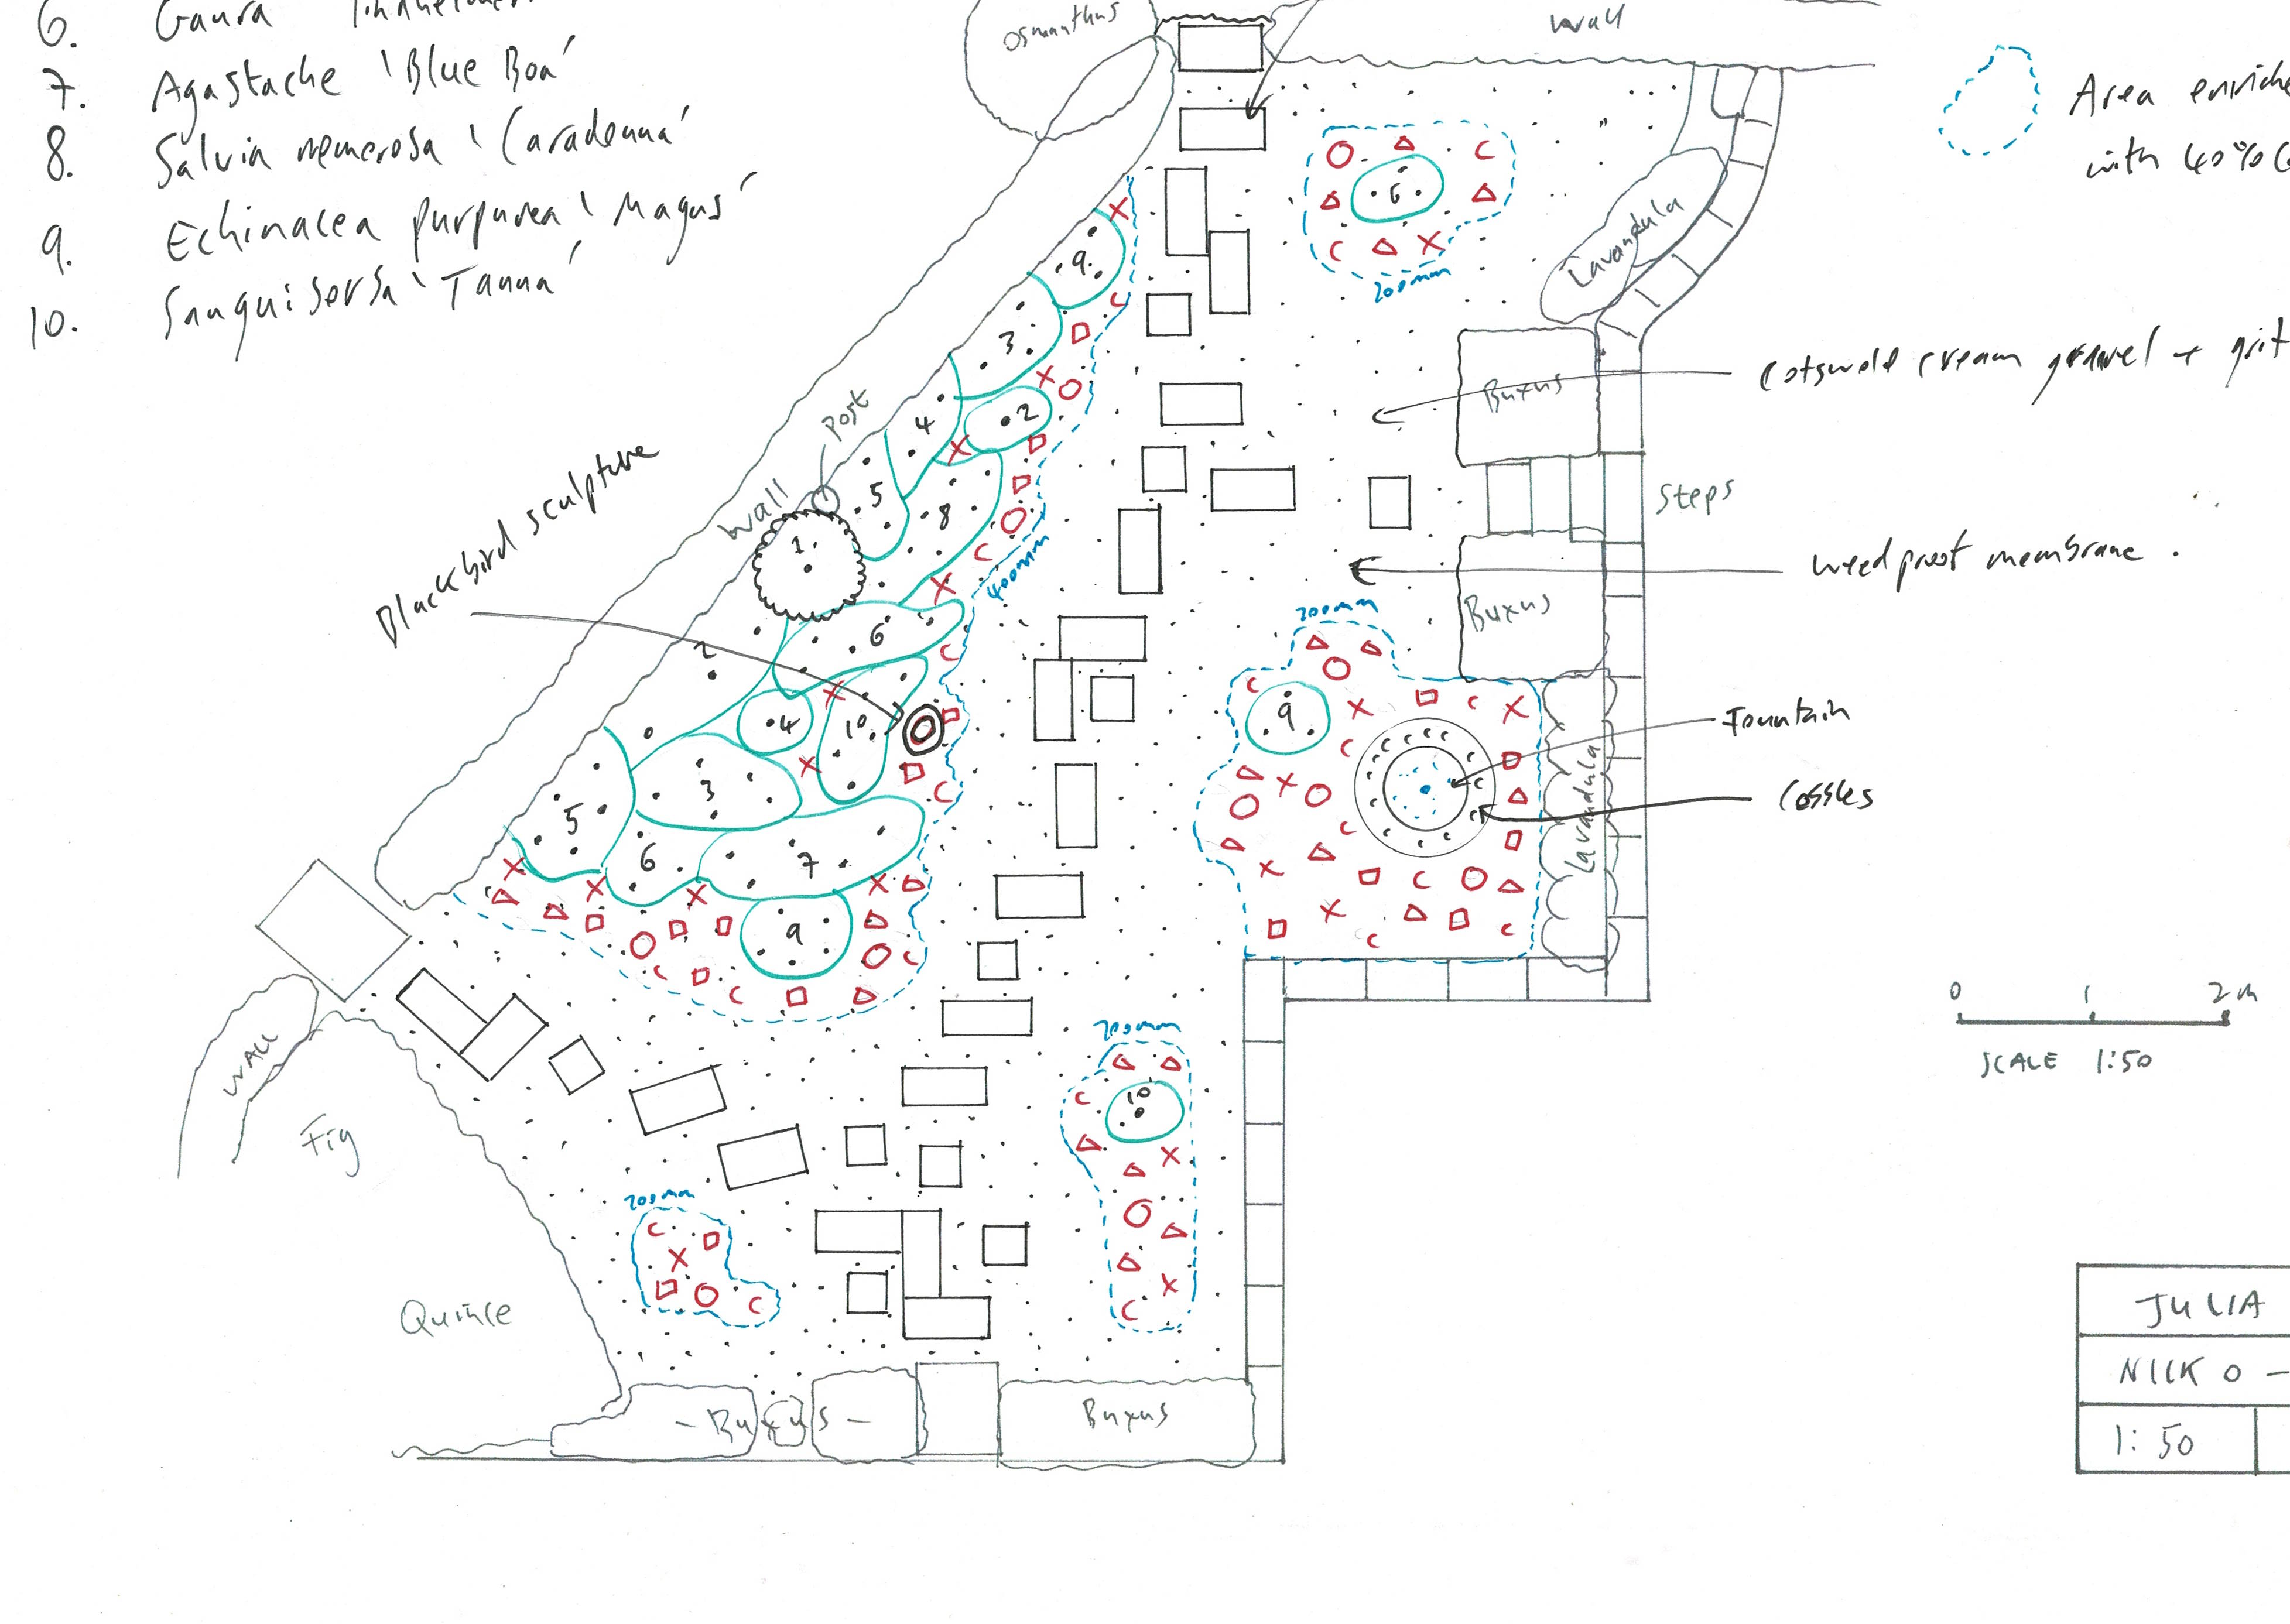 6. Gaura
7. Agastache 'Blue Boa'
8. Salvia nemerosa 'Caradonna'
9. Echinacea purpurea 'Magus'
10. Sanguisorba 'Tanna'
Osmanthus
Wall
Area enriche
with 40%
Lavandula
200mm
6
9
3
4
2
5
8
1
Post
Wall
Blackbird sculpture
400mm
Buxus
Cotswold cream gravel + grit
Steps
Weedproof membrane.
Buxus
200mm
6
2
4
10
3
5
6
7
9
9
Fountain
Cobbles
Lavandula
WALL
Fig
Quince
200mm
200mm
10
0 1 2m
SCALE 1:50
- Buxus -
Buxus
JULIA
NICK O -
1:50